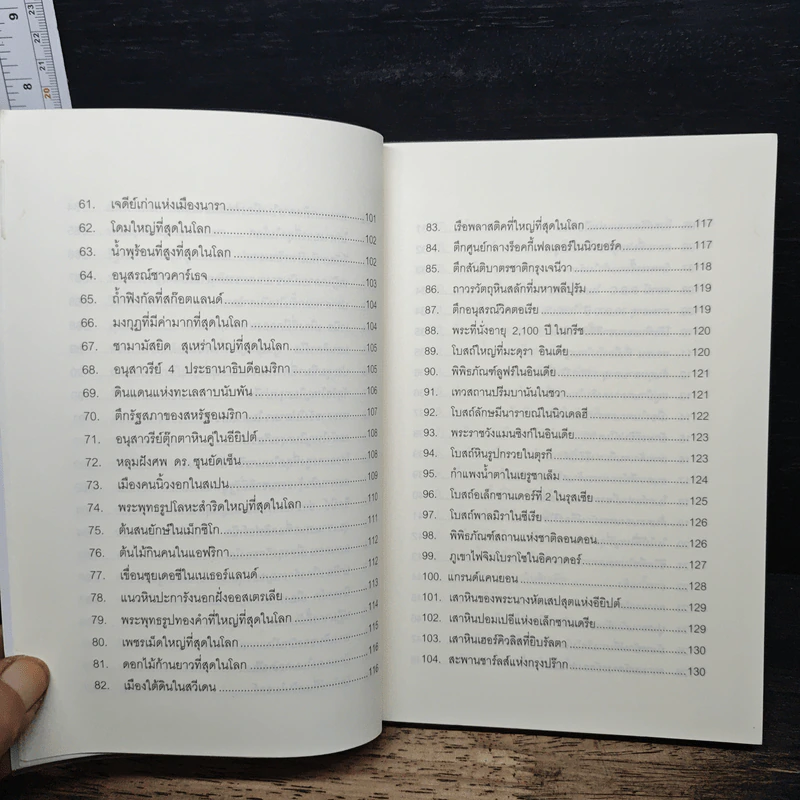 9
8
23
22
21
20
61. เจดีย์เก่าแห่งเมืองนารา 101
62. โดมใหญ่ที่สุดในโลก 102
63. น้ำพุร้อนที่สูงที่สุดในโลก 102
64. อนุสรณ์ชาวคาร์เธจ 103
65. ถ้ำฟิงกัลที่สก๊อตแลนด์ 104
66. มงกุฎที่มีค่ามากที่สุดในโลก 104
67. ชามามัสยิด สุเหร่าใหญ่ที่สุดในโลก 105
68. อนุสาวรีย์ 4 ประธานาธิบดีอเมริกา 105
69. ดินแดนแห่งทะเลสาบนับพัน 106
70. ตึกรัฐสภาของสหรัฐอเมริกา 107
71. อนุสาวรีย์ตุ๊กตาหินคู่ในอียิปต์ 108
72. หลุมฝังศพ ดร. ซุนยัดเซ็น 108
73. เมืองคนนิ้วงอกในสเปน 109
74. พระพุทธรูปโลหะสำริดใหญ่ที่สุดในโลก 110
75. ต้นสนยักษ์ในเม็กซิโก 111
76. ต้นไม้กินคนในแอฟริกา 111
77. เขื่อนซุยเดอซีในเนเธอร์แลนด์ 112
78. แนวหินปะการังนอกฝั่งออสเตรเลีย 113
79. พระพุทธรูปทองคำที่ใหญ่ที่สุดในโลก 114
80. เพชรเม็ดใหญ่ที่สุดในโลก 115
81. ดอกไม้ก้านยาวที่สุดในโลก 116
82. เมืองใต้ดินในสวีเดน 116
83. เรือพลาสติคที่ใหญ่ที่สุดในโลก 117
84. ตึกศูนย์กลางร็อคกี้เฟลเลอร์ในนิวยอร์ค 117
85. ตึกสันติบาตรชาติกรุงเจนีวา 118
86. ถาวรวัตถุหินสลักที่มหาพลีปุรัม 119
87. ตึกอนุสรณ์วิคตอเรีย 119
88. พระที่นั่งอายุ 2,100 ปี ในกรีซ 120
89. โบสถ์ใหญ่ที่มะดุรา อินเดีย 120
90. พิพิธภัณฑ์ลูฟร์ในอินเดีย 121
91. เทวสถานปรัมบานันในชวา 121
92. โบสถ์ลักษมีนารายณ์ในนิวเดลฮี 122
93. พระราชวังแมนซิงก์ในอินเดีย 123
94. โบสถ์หินรูปกรวยในตุรกี 123
95. กำแพงน้ำตาในเยรูซาเล็ม 124
96. โบสถ์อเล็กซานเดอร์ที่ 2 ในรุสเซีย 125
97. โบสถ์พาลมิราในซีเรีย 126
98. พิพิธภัณฑ์สถานแห่งชาติลอนดอน 126
99. ภูเขาไฟจิมโบราโซในอิควาดอร์ 127
100. แกรนด์แคนยอน 128
101. เสาหินของพระนางหัตเสปสุตแห่งอียิปต์ 129
102. เสาหินปอมเปอีแห่งอเล็กซานเดรีย 129
103. เสาหินเฮอร์คิวลิสที่ยิบรัลตา 130
104. สะพานชาร์ลส์แห่งกรุงปร๊าก 130